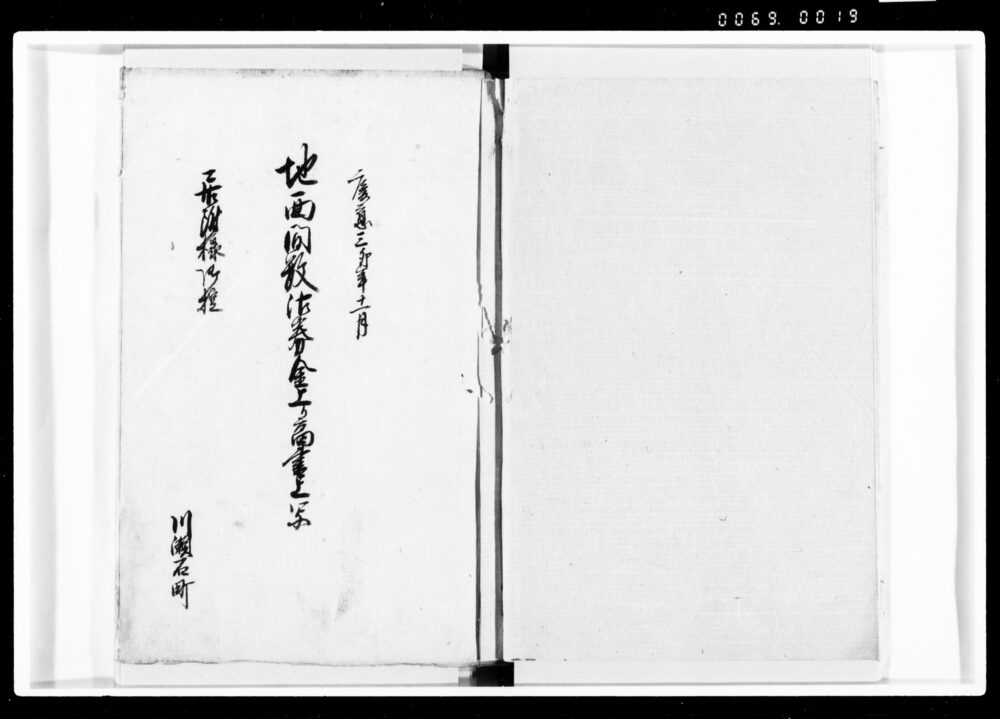 0069. 0019
慶應三卯年十一月
地面間数沽券金上り高書上写
居附様御控
川瀬石町